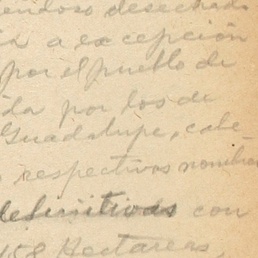 endose desechado
a excepción
por el pueblo de
da por los de
Guadalupe, cabe-
respectivos nombra
definitivas con
158 Hectareas,